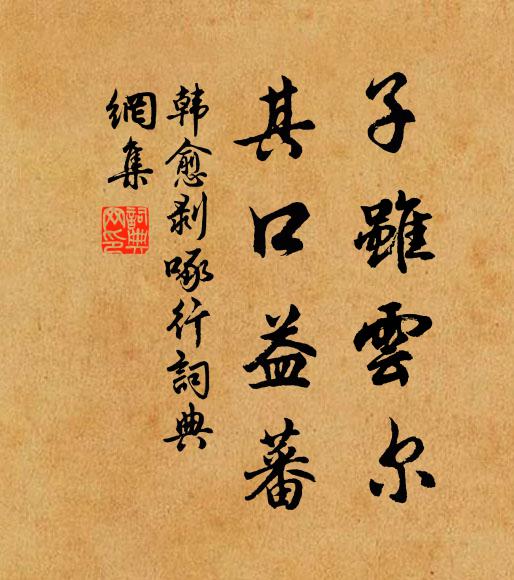 子雖雲尔
其口益蕃
韩愈剥啄行詞典
網集
詞典網印